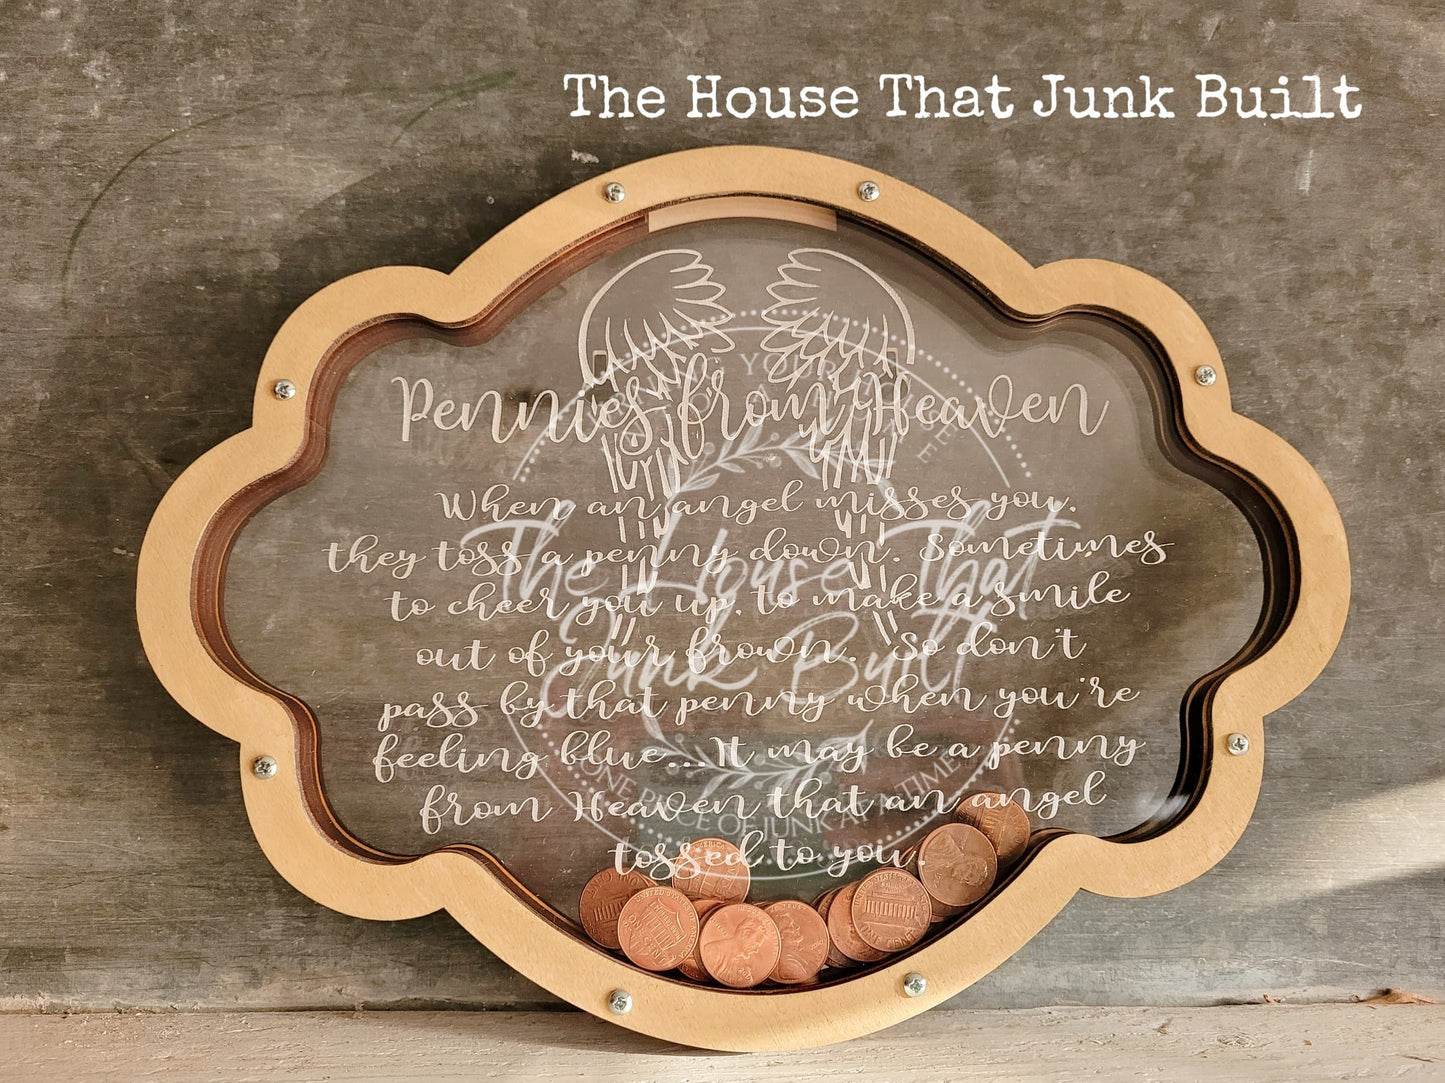 The House That Junk Built
Pennies from Heaven
When an angel misses you,
they toss a penny down. Sometimes
to cheer you up, to make a smile
out of your frown. So don't
pass by that penny when you're
feeling blue...It may be a penny
from Heaven that an angel
tossed to you.
The House That
Junk Built
ONE PIECE OF JUNK AT A TIME